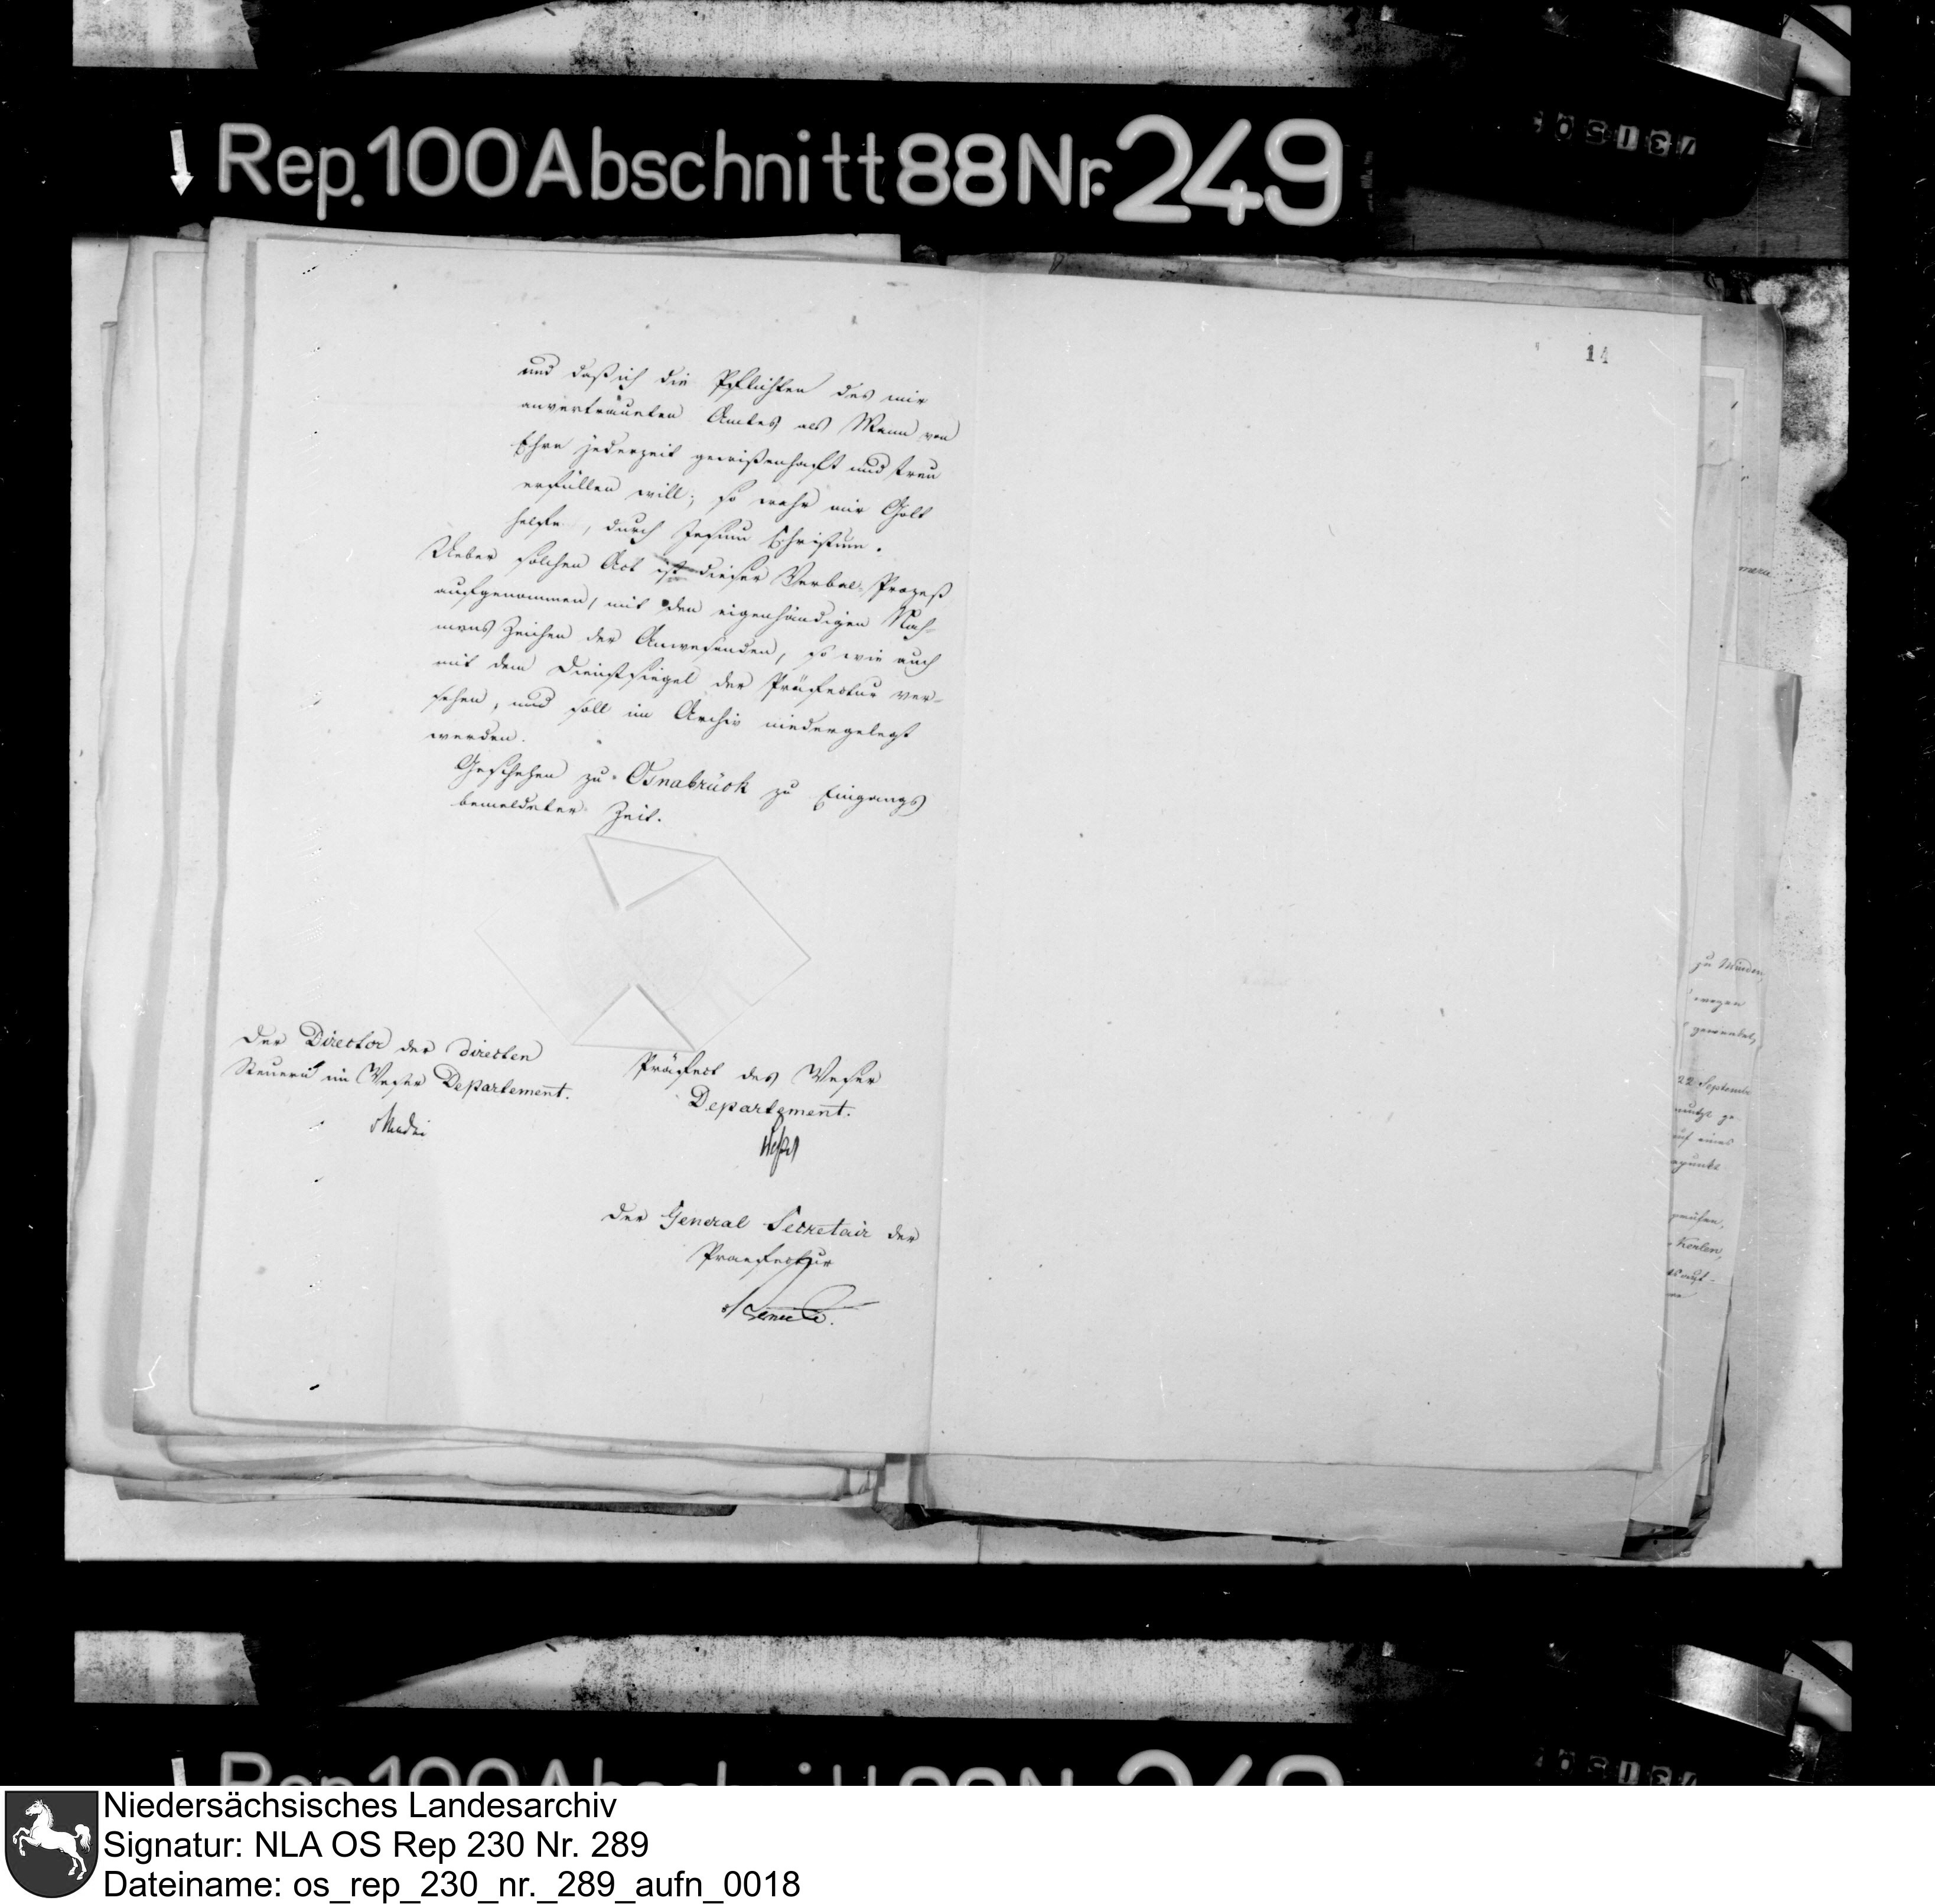 Rep. 100 Abschnitt 88 Nr. 249
14
und daß ich die Pflichten des mir
anvertraueten Amtes als Mann von
Ehre jederzeit gewißenhaft und treu
erfüllen will; so wahr mir Gott
helfe, durch Jesum Christum.
Ueber solchen Act ist dieser Verbal-Prozeß
aufgenommen, mit den eigenhändigen Nah-
mens Zeichen der Anwesenden, so wie auch
mit dem Dienstsiegel der Präfectur ver-
sehen, und soll im Archiv niedergelegt
werden.
Geschehen zu Osnabrück zu Eingangs
bemeldeter Zeit.
Der Director der directen
Steuern im Weser Departement.
Präfect des Weser
Departement.
Der General Secretair der
Praefectur
zu Minden,
wegen
22 September
auf eines
Niedersächsisches Landesarchiv
Signatur: NLA OS Rep 230 Nr. 289
Dateiname: os_rep_230_nr._289_aufn_0018